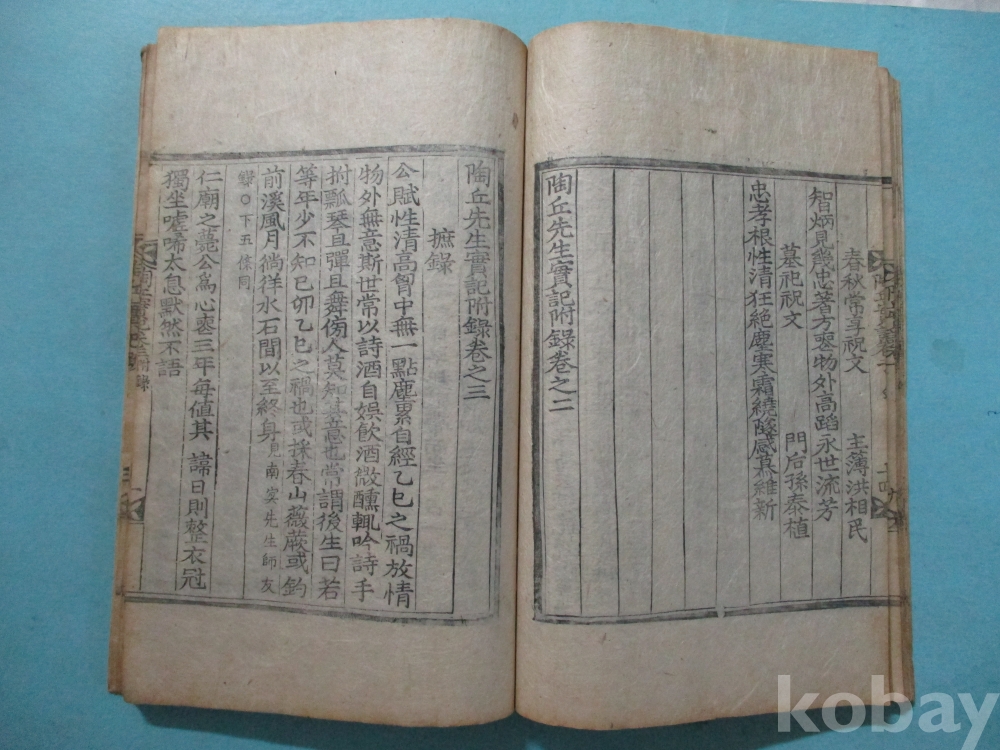 春秋常享祝文 主簿洪相民
智炳見幾忠著方喪物外高蹈永世流芳
墓祀祝文 門后孫秦植
忠孝根性清狂絶塵寒霜繞隧感慕維新
陶丘先生實記附錄卷之二
陶丘先生實記附錄卷之三
摭錄
公賦性清高胷中無一點塵累自經乙巳之禍放情
物外無意斯世常以詩酒自娛飮酒微醺輒吟詩手
拊瓢琴且彈且舞傍人莫知其意也常謂後生曰若
等年少不知己卯乙巳之禍也或採春山薇蕨或釣
前溪風月徜徉水石間以至終身見南冥先生師友
錄○下五條同
仁廟之薨公爲心喪三年每値其 諱日則整衣冠
獨坐噓唏太息默然不語
kobay